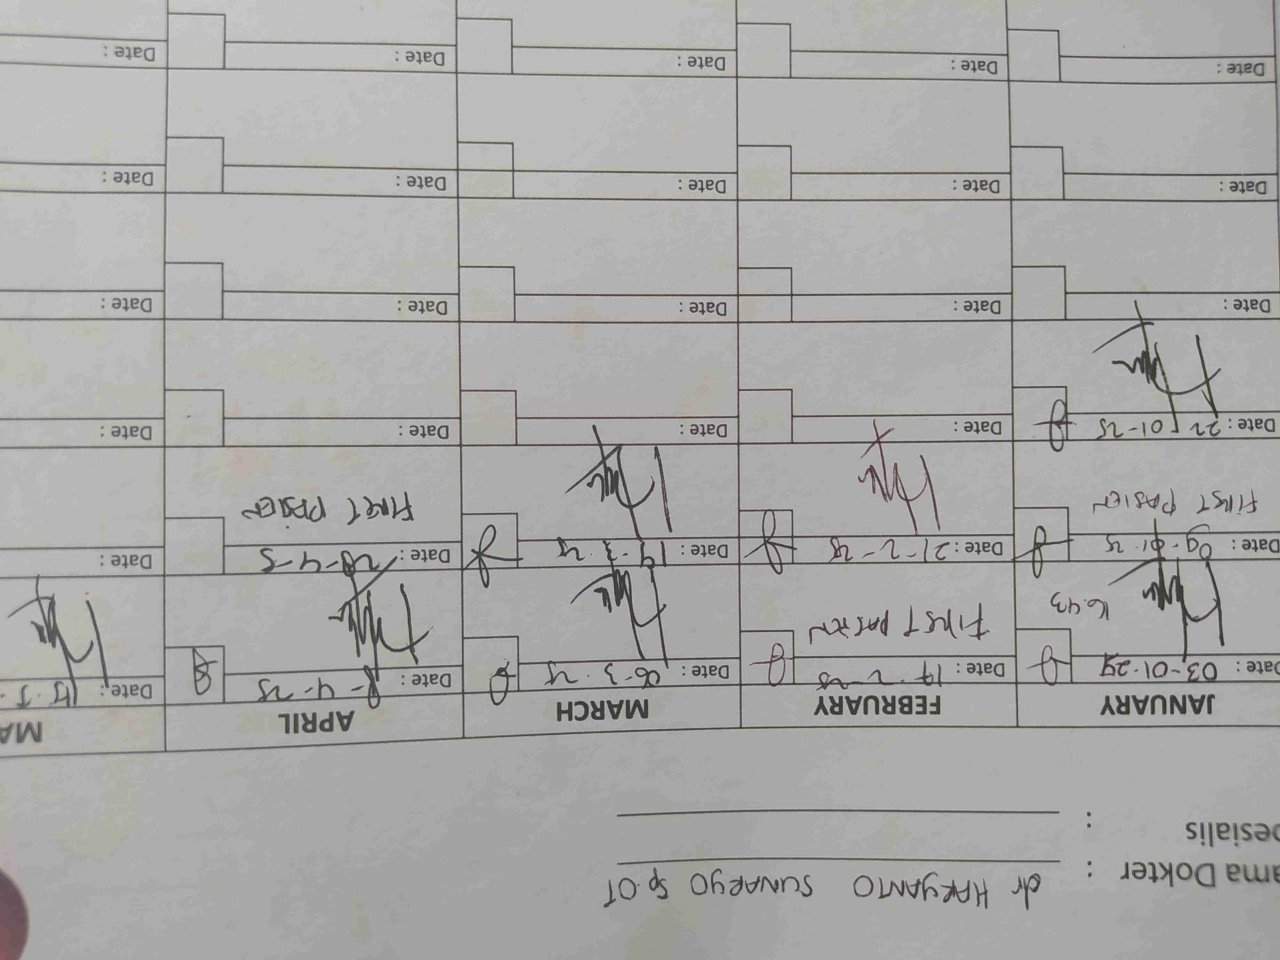 ama Dokter : dr HARYANTO SUNARYO Sp.OT
esialis :
JANUARY FEBRUARY MARCH APRIL MA
Date : 03-01-25 Date : 17-2-25 Date : 06-3-25 Date : 8-4-25 Date : 15.5.
16.43 FIRST PASIEN
Date : 09-01-25 Date : 21-2-25 Date : 19-3-25 Date : 28-4-5 Date :
FIRST PASIEN FIRST PASIEN
Date : 22-01-25 Date : Date : Date : Date :
Date : Date : Date : Date : Date :
Date : Date : Date : Date : Date :
Date : Date : Date : Date : Date :